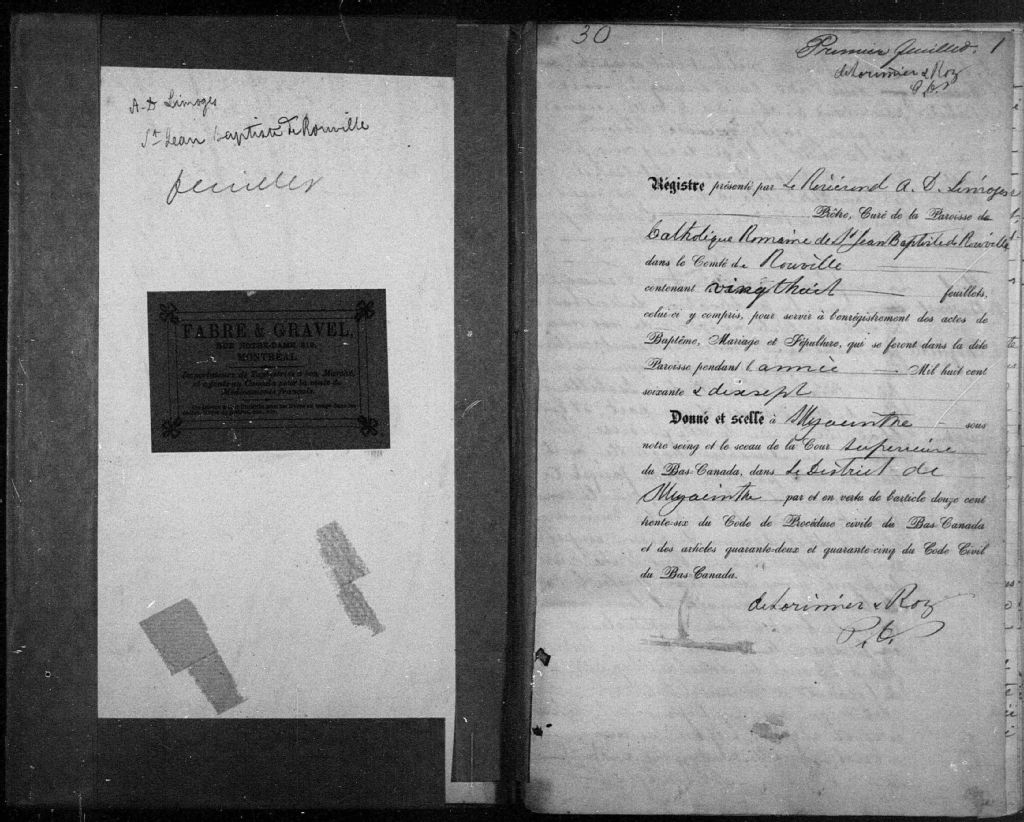 A. D. Limoges
St Jean Baptiste de Rouville
feuillets
FABRE & GRAVEL,
RUE NOTRE-DAME 219,
MONTRÉAL
Importateurs de
et agents au Canada pour la vente de
Médicaments français.
30
Premier feuillet. 1
deLorimier & Roy
P.C.S
Régistre présenté par Le Révérend A. D. Limoges
Prêtre, Curé de la Paroisse de
Catholique Romaine de St Jean Baptiste de Rouville
dans le Comté de Rouville
contenant vingt huit feuillets,
celui-ci y compris, pour servir à l'enrégistrement des actes de
Baptême, Mariage et Sépulture, qui se feront dans la dite
Paroisse pendant l'année Mil huit cent
soixante & dixsept
Donné et scellé à St Hyacinthe sous
notre seing et le sceau de la Cour Supérieure
du Bas-Canada, dans Le District de
St Hyacinthe par et en vertu de l'article douze cent
trente-six du Code de Procédure civile du Bas-Canada
et des articles quarante-deux et quarante-cinq du Code Civil
du Bas-Canada.
deLorimier & Roy
P.C.S